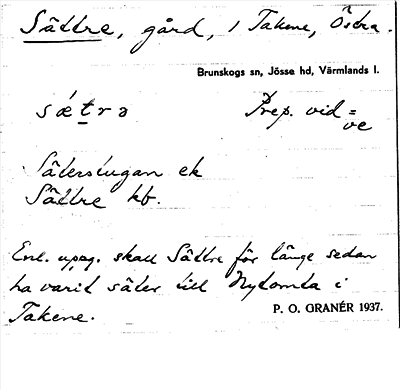 Sättre, gård, i Takene, Östra.
Brunskogs sn, Jösse hd, Värmlands l.
sǽtrə Prep. vid =
ve
Säterstugan ek
Sättre kb.
Enl. uppg. skall Sättre för länge sedan
ha varit säter till Nytomta i
Takene.
P. O. GRANÉR 1937.